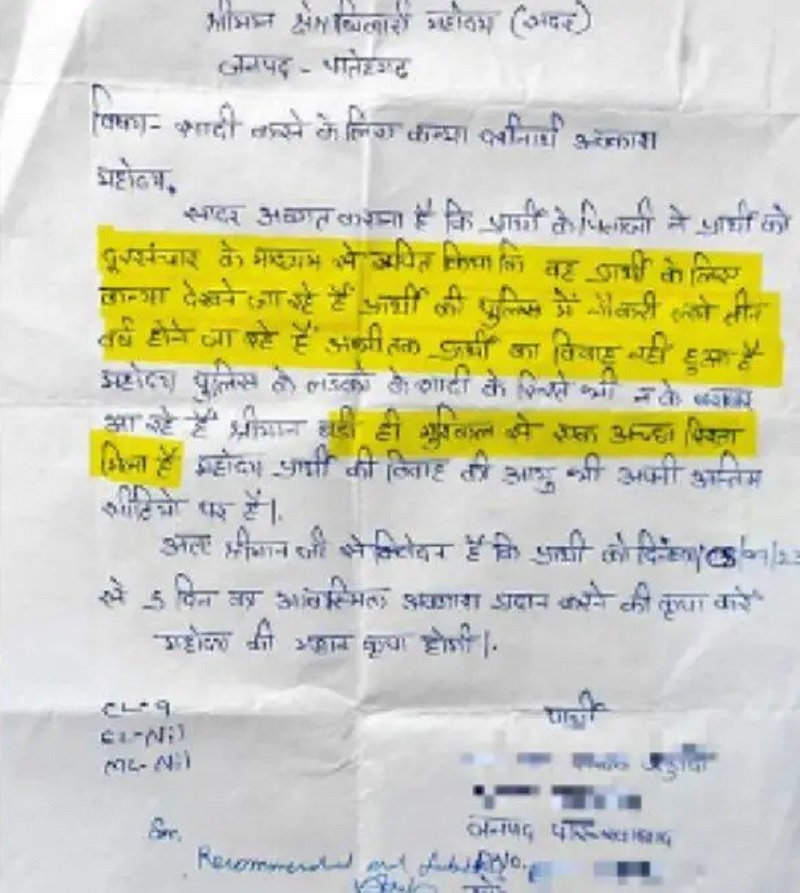 श्रीमान क्षेत्राधिकारी महोदय (सदर)
जनपद - फतेहगढ़
विषय - शादी करने के लिए कन्या दर्शनार्थ अवकाश
महोदय,
सादर अवगत कराना है कि प्रार्थी के पिताजी ने प्रार्थी को
दूरसंचार के माध्यम से सूचित किया कि वह प्रार्थी के लिए
कन्या देखने जा रहे हैं प्रार्थी की पुलिस में नौकरी करते तीन
वर्ष होने जा रहे हैं अभी तक प्रार्थी का विवाह नही हुआ है
महोदय पुलिस के लडको के शादी के रिश्ते भी न के बराबर
आ रहे हैं श्रीमान बडी ही मुश्किल से एक अच्छा रिश्ता
मिला है महोदय प्रार्थी की विवाह की आयु भी अपनी अन्तिम
सीढियो पर है।
अतः श्रीमान जी से निवेदन है कि प्रार्थी को दिनांक
से 5 दिन का आकस्मिक अवकाश प्रदान करने की कृपा करें
महोदय की महान कृपा होगी।
CL-9
EL-Nil
ML-Nil
प्रार्थी
जनपद फर्रुखाबाद
Sir,
Recommended and